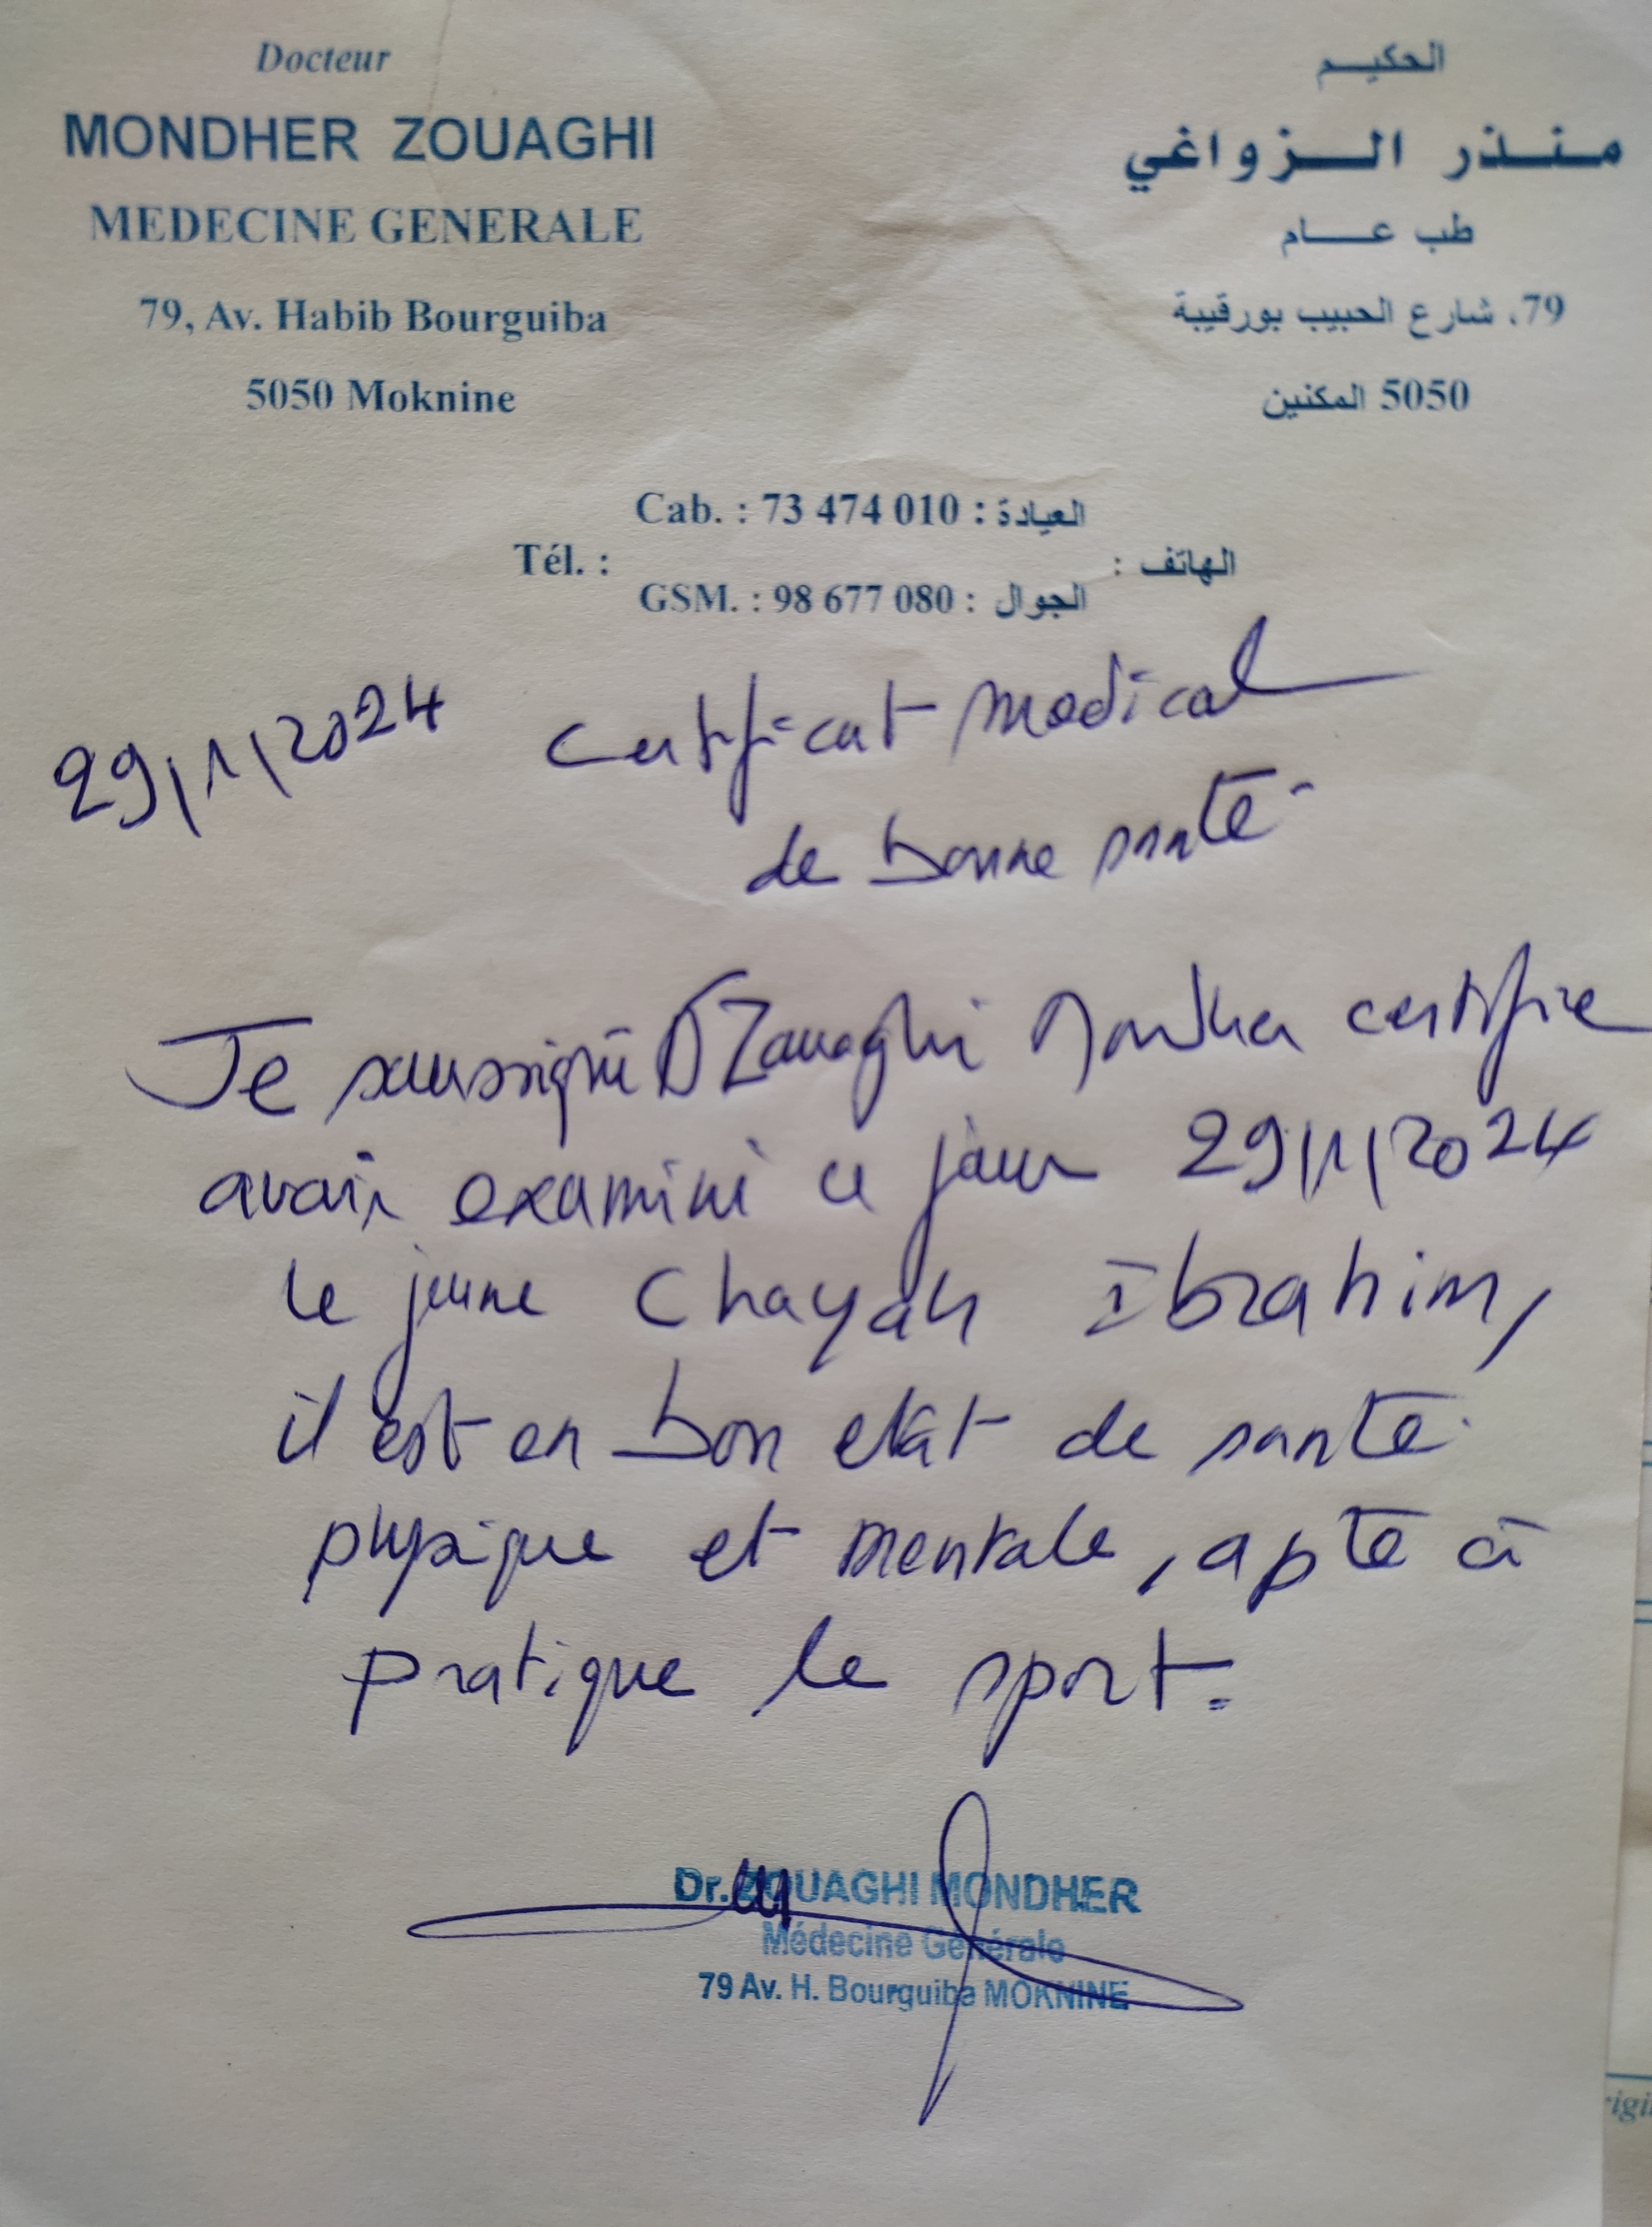 Docteur
MONDHER ZOUAGHI
MEDECINE GENERALE
79, Av. Habib Bourguiba
5050 Moknine
الحكيم
منذر الزواغي
طب عام
79، شارع الحبيب بورقيبة
5050 المكنين
Cab. : 73 474 010 : العيادة
Tél. : الهاتف :
GSM. : 98 677 080 : الجوال
29/1/2024 Certificat medical
de bonne santé
Je soussigné Dr Zouaghi Mondher certifie
avoir examiné ce jour 29/1/2024
le jeune Chayah Ibrahim,
il est en bon etat de santé
physique et mentale, apte à
pratique le sport.
Dr. ZOUAGHI MONDHER
Médecine Générale
79 Av. H. Bourguiba MOKNINE